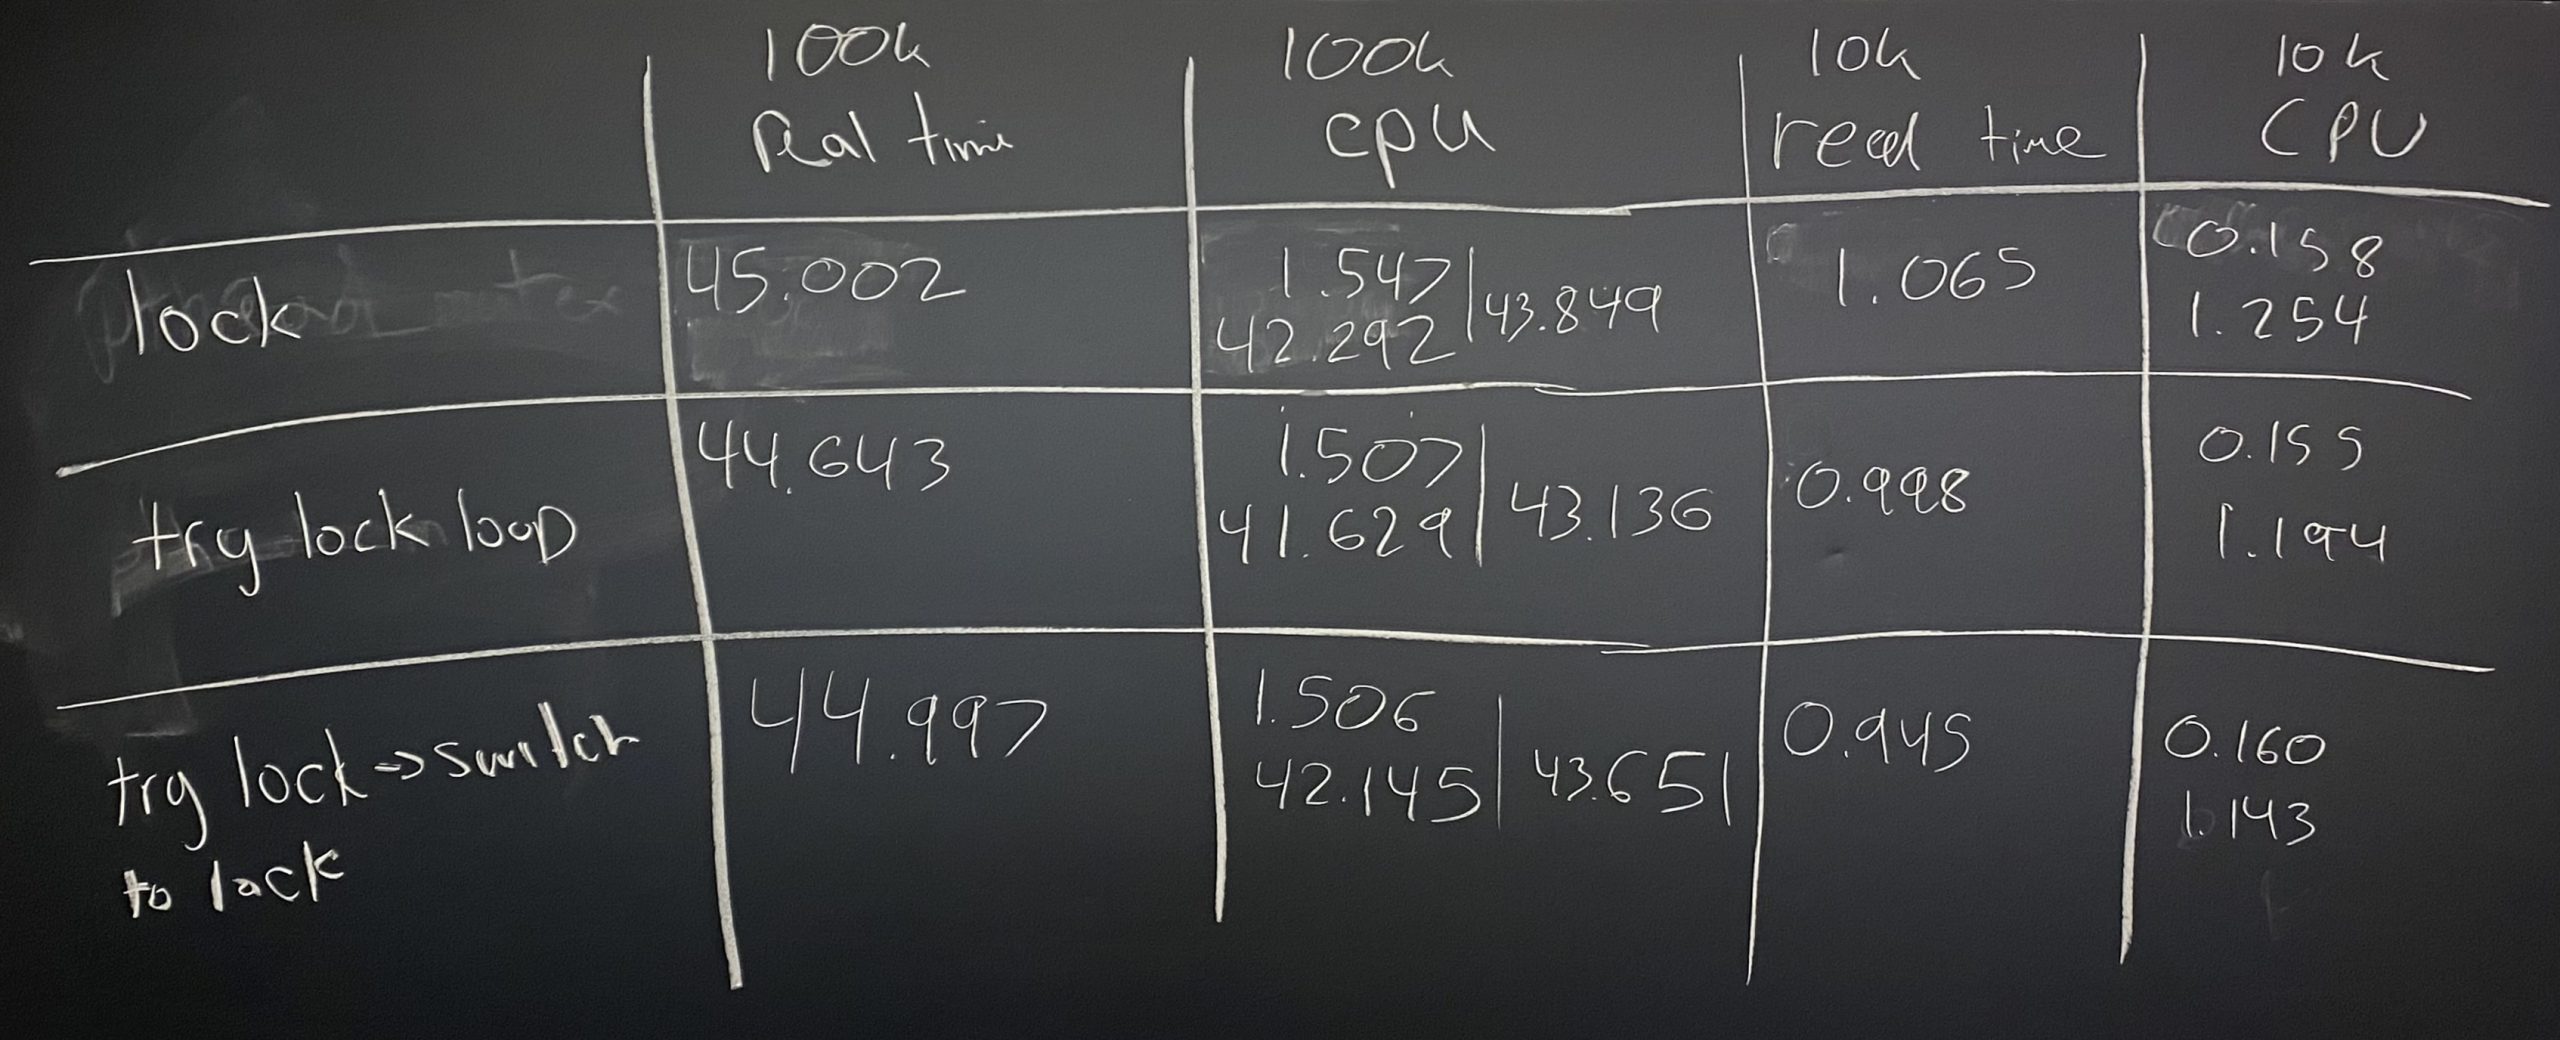 100k 100k 10k 10k
Real time cpu real time CPU
lock 45.002 1.547 | 43.849 1.065 0.158
42.292 1.254
try lock loop 44.643 1.507 | 43.136 0.998 0.155
41.629 1.194
try lock → switch 44.997 1.506 | 43.651 0.945 0.160
42.145 1.143
to lock